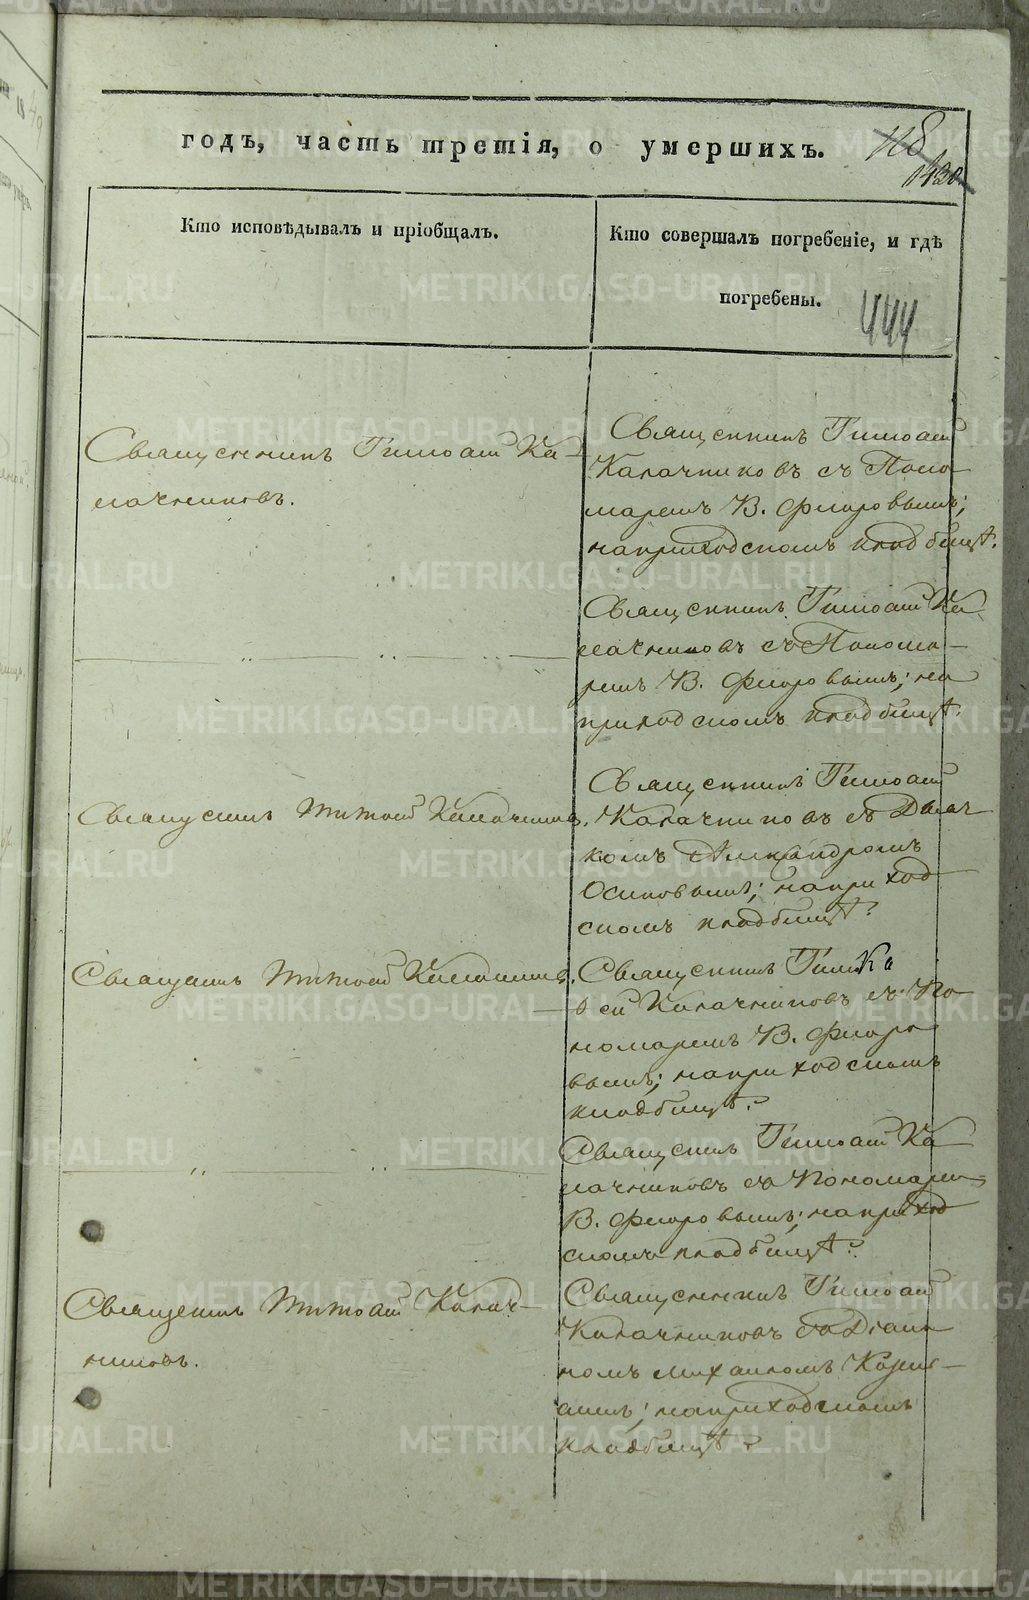 годъ, часть третія, о умершихъ.
118
1420
Кто исповѣдывалъ и пріобщалъ.
Кто совершалъ погребеніе, и гдѣ
погребены.
444
Священникъ Тимоѳей Ка-
лачниковъ.
Священникъ Тимоѳей
Калачниковъ съ Поно
маремъ В. Флоровымъ;
на приходскомъ кладбищѣ.
Священникъ Тимоѳей Ка
лачниковъ съ Понома-
ремъ В. Флоровымъ; на
приходскомъ кладбищѣ.
Священникъ Тимоѳей
Калачниковъ съ Дьяч
комъ Александромъ
Осиповымъ; на приход
скомъ кладбищѣ.
Священникъ Тимоѳей
Священникъ Тимо
ѳей Калачниковъ съ По
номаремъ В. Флоро
вымъ; на приходскомъ
кладбищѣ.
Священникъ Тимоѳей
Священникъ Тимоѳей Ка
лачниковъ съ Пономарем
В. Флоровымъ; на приход
скомъ кладбищѣ.
Священникъ Тимоѳей Калач-
никовъ.
Священникъ Тимоѳей
Калачниковъ съ Діако
номъ Михаиломъ
на приходскомъ
кладбищѣ
METRIKI.GASO-URAL.RU